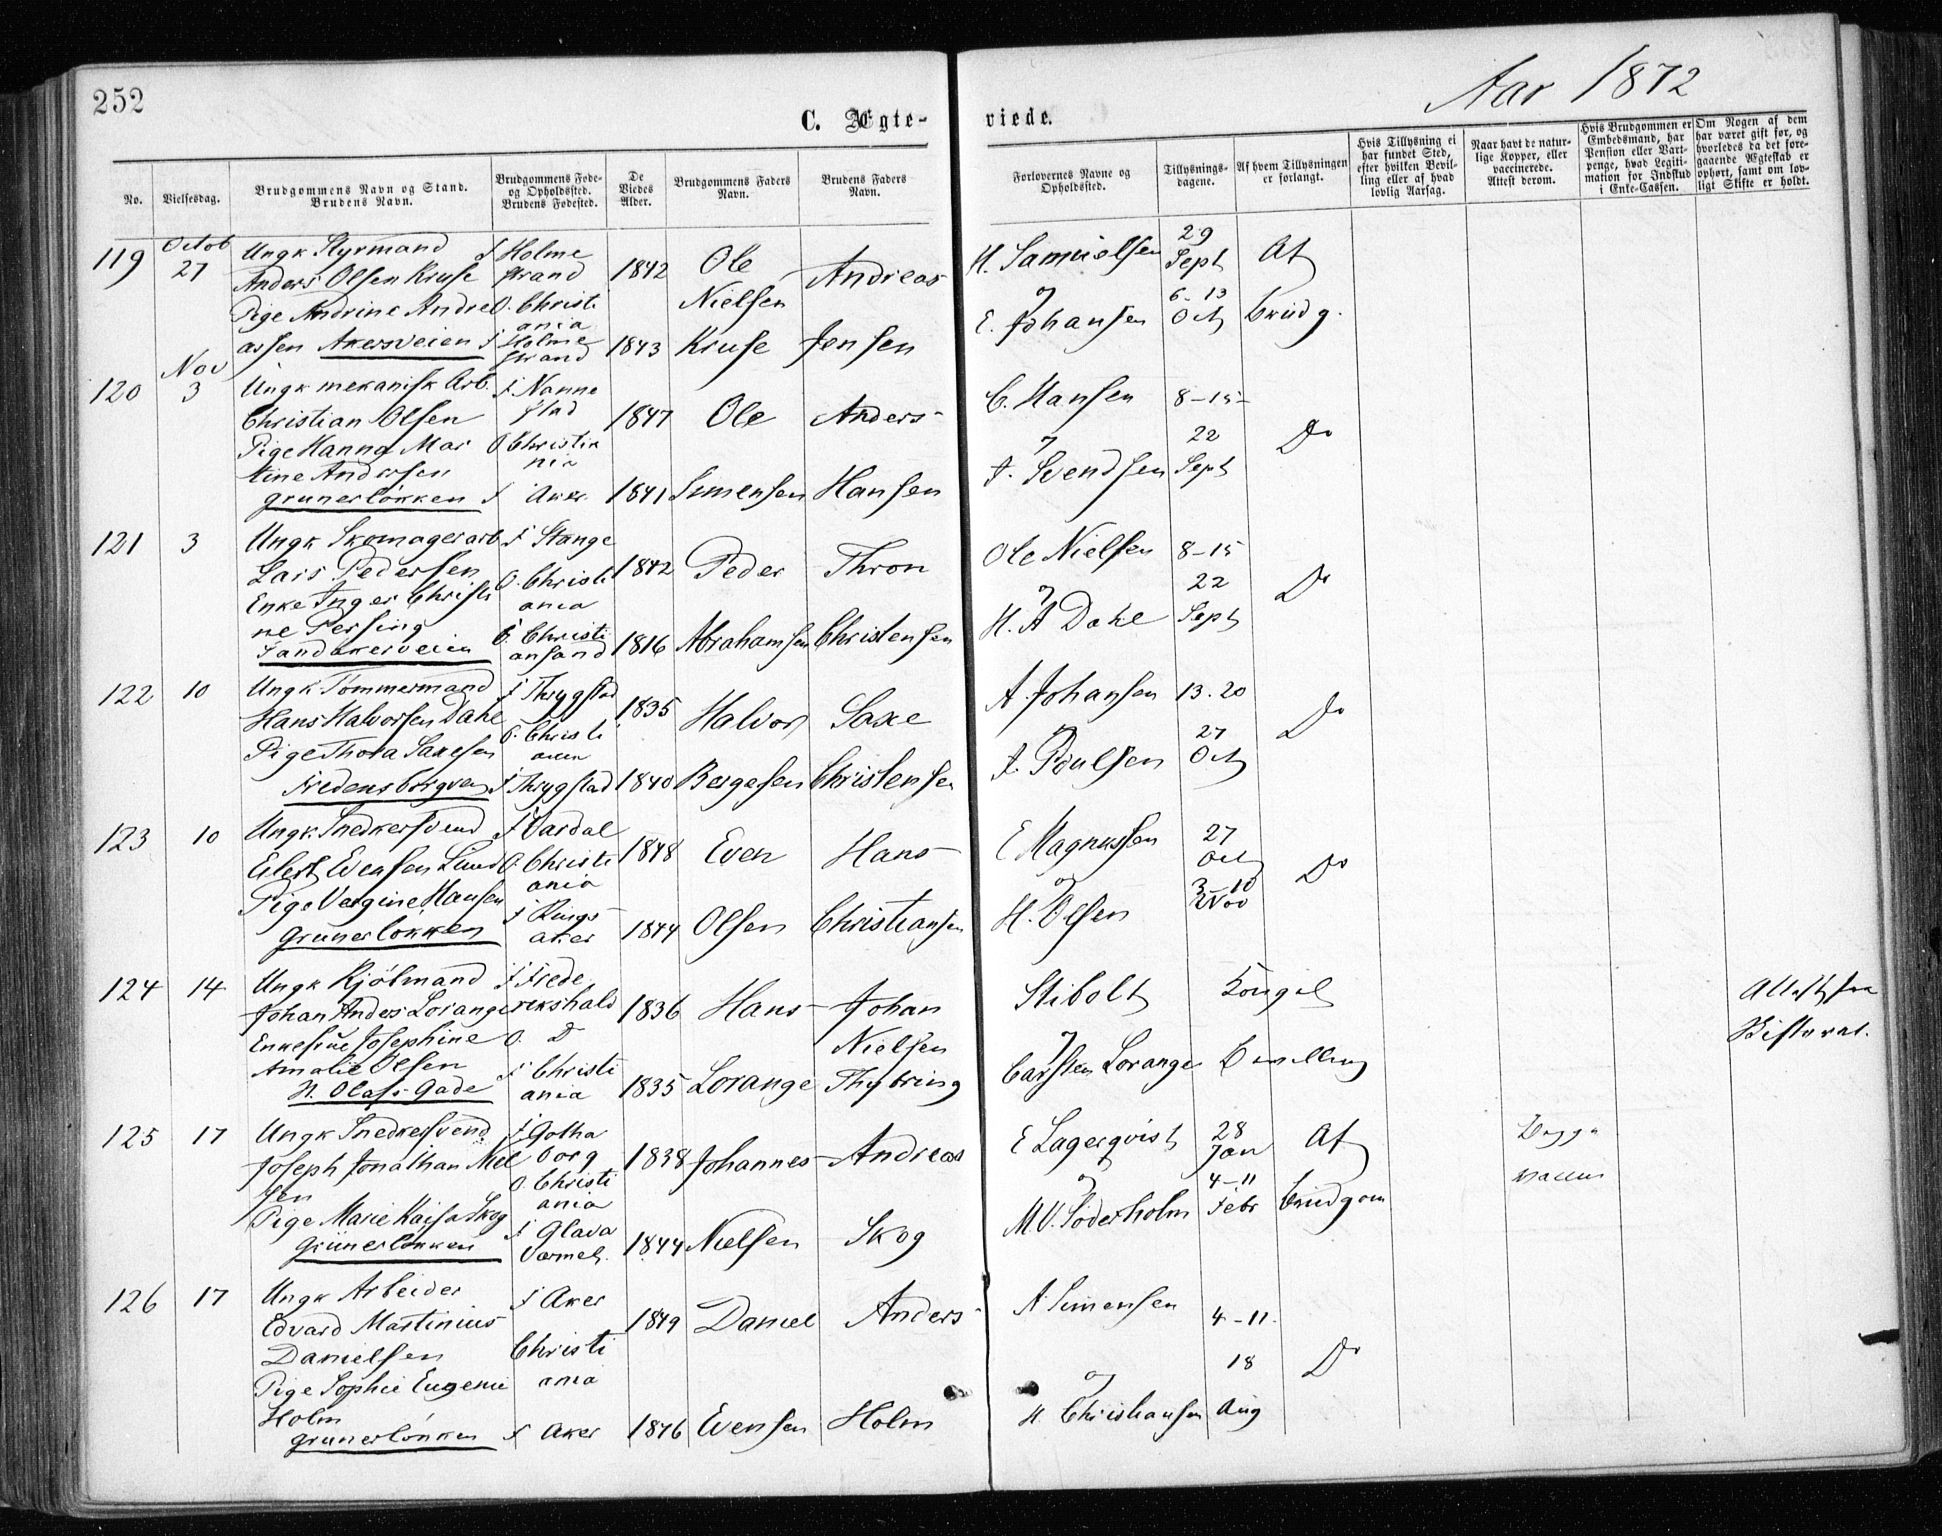 252
C. Ægte-
viede.
Aar 1872
No.
Vielsesdag.
Brudgommens Navn og Stand.
Brudens Navn.
Brudgommens Føde-
og Opholdssted.
Brudens Fødested.
De
Viedes
Alder.
Brudgommens Faders
Navn.
Brudens Faders
Navn.
Forlovernes Navne og
Opholdssted.
Tillysnings-
dagene.
Af hvem Tillysningen
er forlangt.
Hvis Tillysning ei
har fundet Sted,
efter hvilken Bevil-
ling eller af hvad
lovlig Aarsag.
Naar havt de natur-
lige Kopper, eller
vaccinerede.
Attest derom.
Hvis Brudgommen er
Embedsmand, har
Pension eller Vart-
penge, hvad Legiti-
mation for Indskud
i Enke-Cassen.
Om Nogen af dem
har været gift før, og
hvorledes da det fore-
gaaende Ægteskab er
ophørt, samt om lov-
ligt Skifte er holdt.
119
Octob
27
Ungk Styrmand
Anders Olsen Kruse
Pige Andrine Andre
assen Akersveien
f Holme
strand
O. Christi
ania
f Holme
strand
1842
1843
Ole
Nielsen
Kruse
Andreas
Jensen
H. Samuelsen
og
E. Johansen
29
Sept
6-13
Oct
Af
brudg.
120
Nov
3
Ungk mekanisk Arb.
Christian Olsen
Pige Hanna Mar
tine Andersen
Grunerløkken
f Nanne
stad
O Christia
nia
f Aker
1847
1841
Ole
Simensen
Anders-
Hansen
C. Hansen
og
J. Svendsen
8-15-
22
Sept
Do
121
3
Ungk Skomagerarb
Lars Pedersen
Enke Inger Christi
ne Persing
Sandakerveien
f Stange
O. Christi
ania
f. Christi
ansand
1842
1816
Peder
Abrahamsen
Thron
Christensen
Ole Nielsen
og
H. A Dahl
8-15
22
Sept
Do
122
10
Ungk Tømmermand
Hans Halvorsen Dahl
Pige Thora Saxesen
Fredensborgvei
f Thrygstad
O. Christi
ania
f Thrygstad
1835
1840
Halvor
Bergesen
Saxe
Christensen
A. Johansen
og
J. Poulsen
13.20
27
Oct
Do
123
10
Ungk. Snedkersvend
Eilert Evensen Lund
Pige Vergine Hansen
Grünerløkken
f Vardal
O. Christi
ania
f Rings-
aker
1848
1844
Even
Olsen
Hans-
Christiansen
E Magnussen
og
H. Olsen
27
Oct
3-10
Nov
Do
124
14
Ungk Kjølmand
Johan Anders Lorange
Enkefrue Josephine
Amalie Olsen
N. Olafs Gade
f Frede
rikshald
O. D
f Christi
ania
1836
1835
Hans-
Lorange
Johan
Nielsen
Thybring
Stibolt
og
Carsten Lorange
Kongel
Bevilling
Attest fra
Skifteret.
125
17
Ungk Snedkersvend
Joseph Jonathan Niel
sen
Pige Marie Kaisa Skog
Grünerløkken
f. Gotha
borg
O. Christi
ania
f Glava
Vermel.
1838
1844
Johannes-
Nielsen
Andreas
Skog
E Lagerqvist
og
M.V. Söderholm
28
Jan
4-11
Febr
Af
brudgom
Begge
vaccin
126
17
Ungk Arbeider
Edvard Martinius
Danielsen
Pige Sophie Eugenie
Holm
Grunerløkken
f Aker
Christi
ania
f Aker
1849
1846
Daniel
Evensen
Anders-
Holm
A Simensen
og
H. Christiansen
4-11.
18
Aug
Do